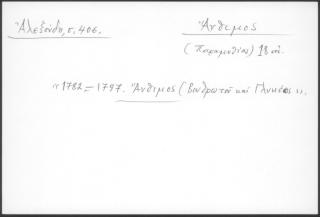 Ἀλεξούδη, σ. 406.
Ἄνθιμος
(Παραμυθίας) 18 αἰ.
"1782 – 1797. Ἄνθιμος (Βουθρωτοῦ καὶ Γλυκέος)".